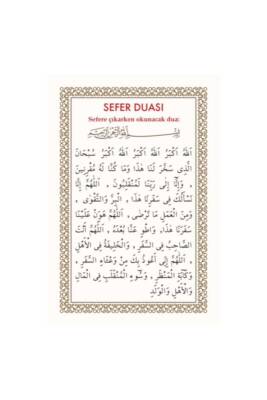 SEFER DUASI
Sefere çıkarken okunacak dua:
بِسْمِ اللهِ الرَّحْمٰنِ الرَّحِيمِ
اَللهُ اَكْبَرُ اَللهُ اَكْبَرُ اَللهُ اَكْبَرُ سُبْحَانَ
الَّذِي سَخَّرَ لَنَا هَذَا وَمَا كُنَّا لَهُ مُقْرِنِينَ
، وَإِنَّا إِلَى رَبِّنَا لَمُنْقَلِبُونَ ، اَللَّهُمَّ إِنَّا
نَسْأَلُكَ فِي سَفَرِنَا هَذَا، الْبِرَّ وَالتَّقْوَى ،
وَمِنَ الْعَمَلِ مَا تَرْضَى ، اَللَّهُمَّ هَوِّنْ عَلَيْنَا
سَفَرَنَا هَذَا، وَاطْوِ عَنَّا بُعْدَهُ ، اَللَّهُمَّ أَنْتَ
الصَّاحِبُ فِي السَّفَرِ ، وَالْخَلِيفَةُ فِي الْأَهْلِ
، اَللَّهُمَّ إِنِّي أَعُوذُ بِكَ مِنْ وَعْثَاءِ السَّفَرِ ،
وَكَآبَةِ الْمَنْظَرِ ، وَسُوءِ الْمُنْقَلَبِ فِي الْمَالِ
وَالْأَهْلِ وَالْوَلَدِ